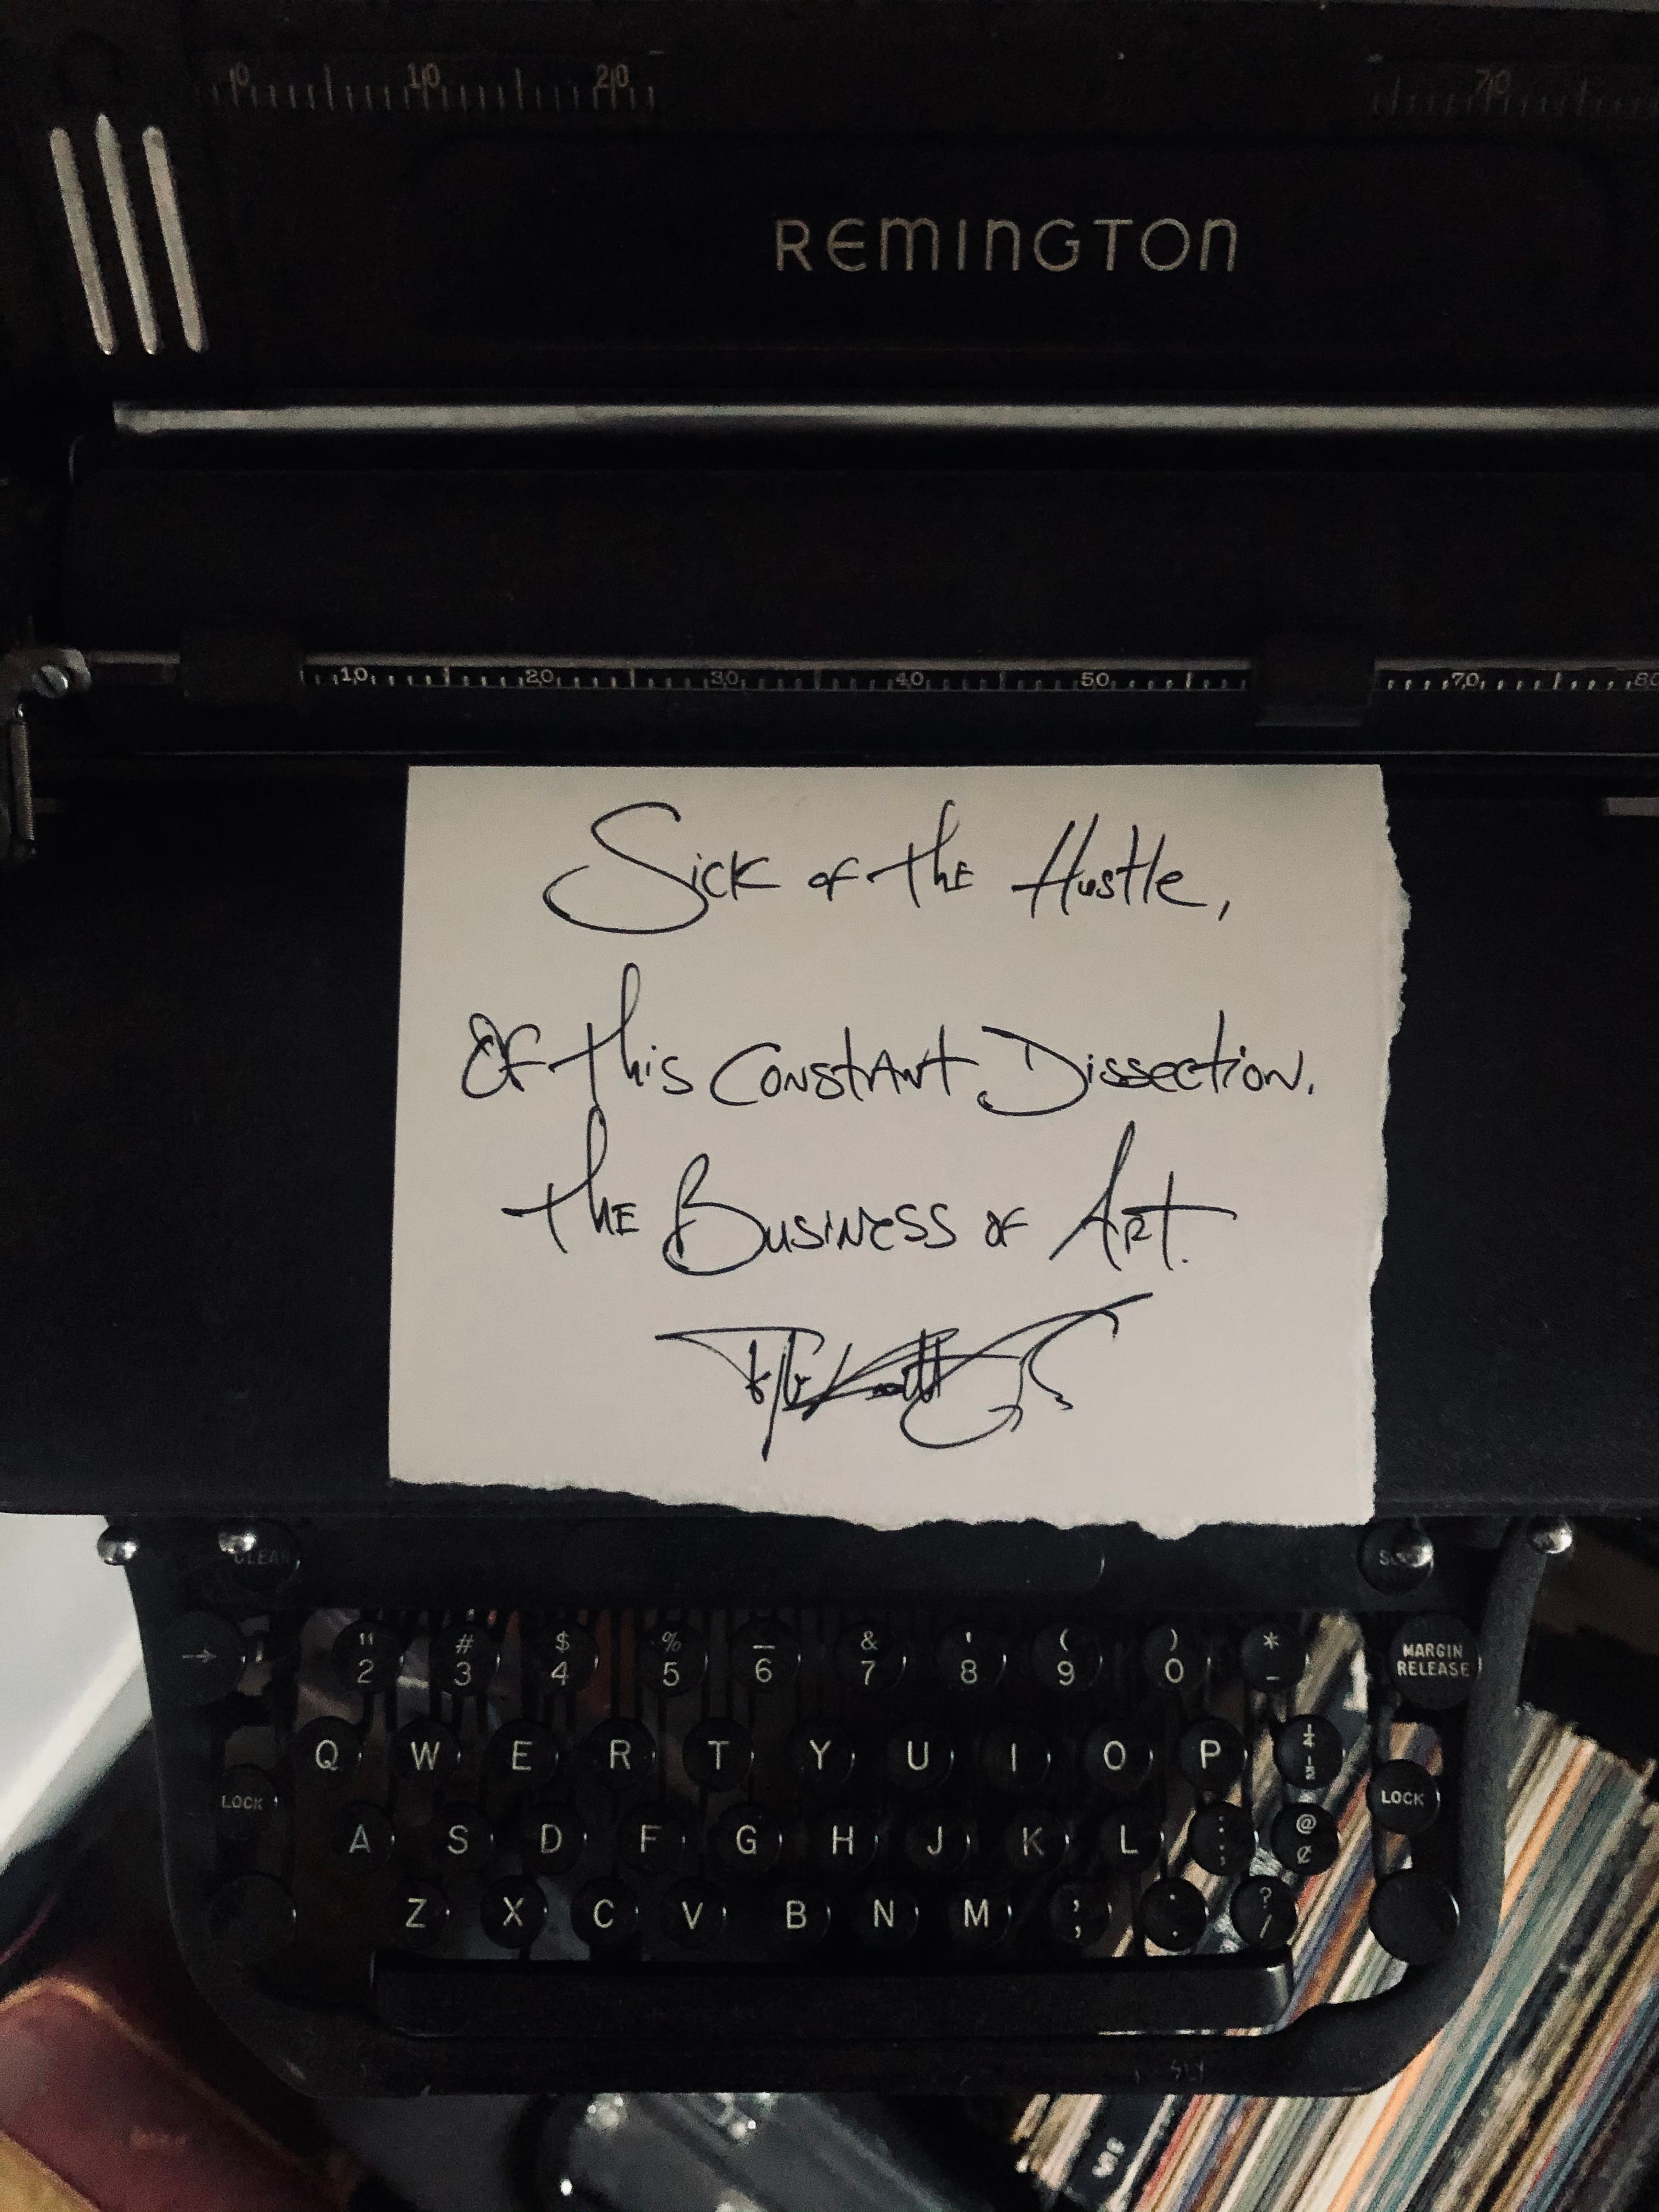 0 10 20 70
REMINGTON
10 20 30 40 50 70 80
Sick of the Hustle,
Of this Constant Dissection.
the Business of Art.
CLEAR
" # $ % _ & ' ( ) *
→ 2 3 4 5 6 7 8 9 0 - MARGIN RELEASE
Q W E R T Y U I O P ¼ ½
LOCK A S D F G H J K L : ; @ ¢ LOCK
Z X C V B N M , ; . ? /